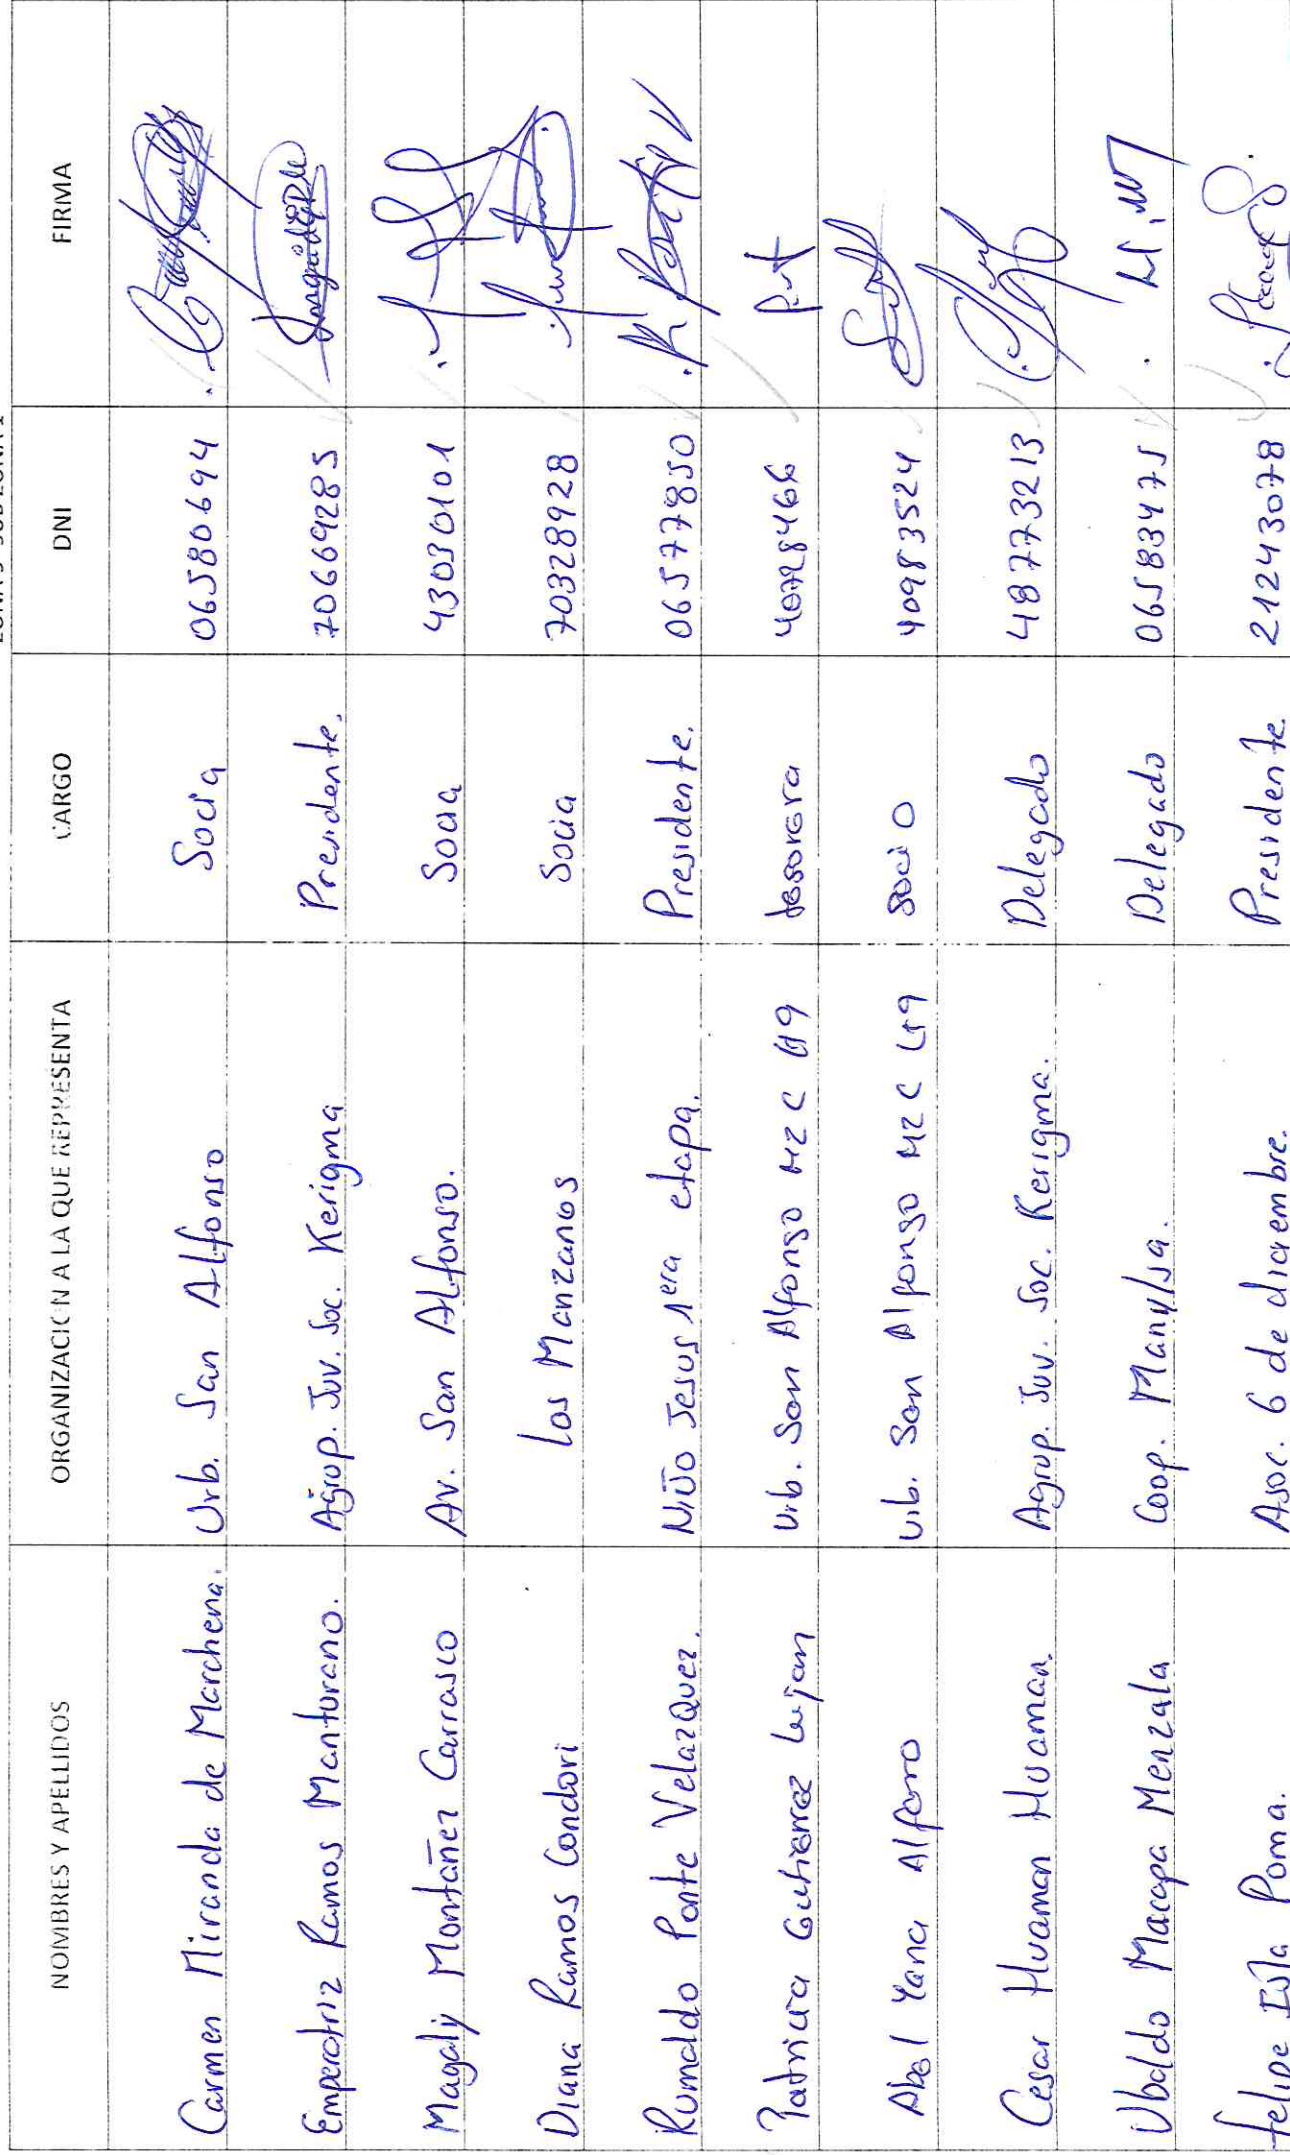 NOMBRES Y APELLIDOS ORGANIZACION A LA QUE REPRESENTA CARGO DNI FIRMA
Carmen Miranda de Marchena. Urb. San Alfonso Socia 06580694
Emperatriz Ramos Manturano. Agrup. Juv. Soc. Kerigma Presidente. 70669285
Magaly Montañez Carrasco Av. San Alfonso. Socia 43030101
Diana Ramos Condori Los Manzanos Socia 70328928
Rumaldo Ponte Velazquez. Niño Jesus 1era etapa. Presidente. 06577850
Patricia Gutierrez Lujan Urb. San Alfonso Mz C Lt9 tesorera 40728466
Abel Yana Alfaro Urb. San Alfonso Mz C Lt9 socio 40983524
Cesar Huaman Huaman. Agrup. Juv. Soc. Kerigma. Delegado 48773213
Ubaldo Macapa Menzala Coop. Manylsa. Delegado 06583475
Felipe Isla Poma. Asoc. 6 de diciembre. Presidente. 21243078